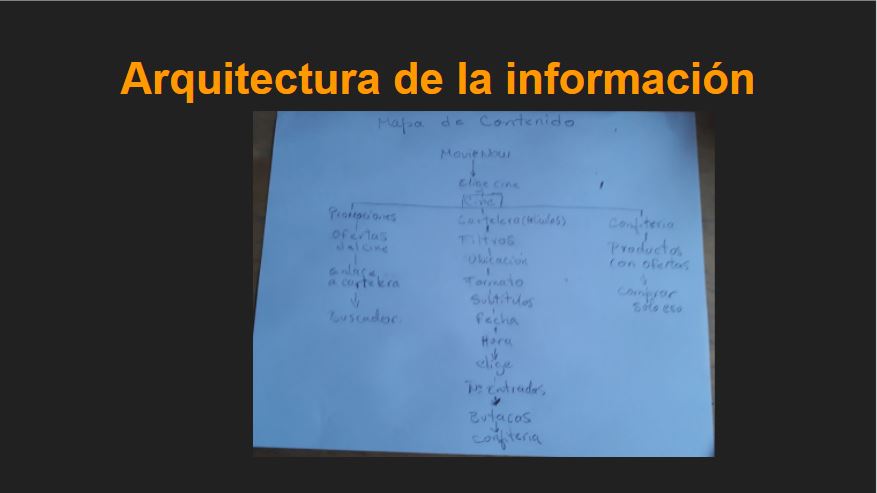 Arquitectura de la información
Mapa de Contenido
MovieNow
Elige cine
Cine
Promociones
Ofertas
del cine
enlace
a cartelera
Buscador
Cartelera (Películas)
Filtros
Ubicación
Formato
Subtítulos
Fecha
Hora
elige
N° Entradas
Butacas
Confiteria
Confiteria
Productos
con ofertas
Comprar
Solo eso